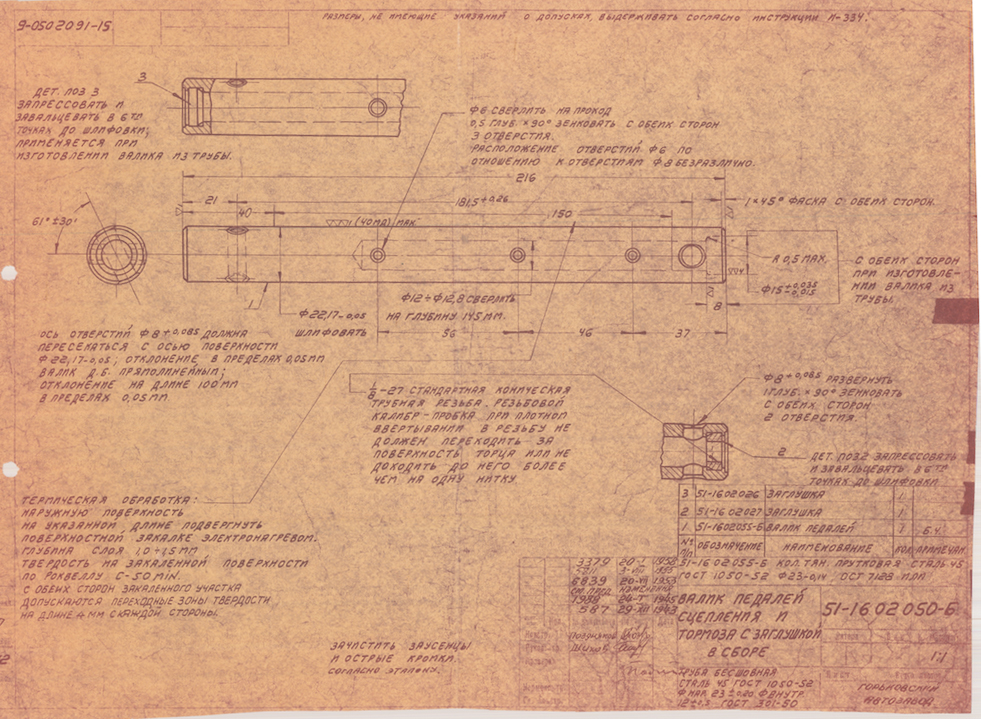 9-0502091-15
РАЗМЕРЫ, НЕ ИМЕЮЩИЕ УКАЗАНИЙ О ДОПУСКАХ, ВЫДЕРЖИВАТЬ СОГЛАСНО ИНСТРУКЦИИ И-334.
3
ДЕТ. ПОЗ 3
ЗАПРЕССОВАТЬ И
ЗАВАЛЬЦЕВАТЬ В 6ТИ
ТОЧКАХ ДО ШЛИФОВКИ;
ПРИМЕНЯЕТСЯ ПРИ
ИЗГОТОВЛЕНИИ ВАЛИКА ИЗ ТРУБЫ.
Ф6 СВЕРЛИТЬ НА ПРОХОД
0,5 ГЛУБ. × 90° ЗЕНКОВАТЬ С ОБЕИХ СТОРОН
3 ОТВЕРСТИЯ.
РАСПОЛОЖЕНИЕ ОТВЕРСТИЙ Ф6 ПО
ОТНОШЕНИЮ К ОТВЕРСТИЯМ Ф8 БЕЗРАЗЛИЧНО.
216
21
181,5+0,26
40
150
1×45° ФАСКА С ОБЕИХ СТОРОН.
61°±30'
(40МД) МАК.
R 0,5 МАХ.
С ОБЕИХ СТОРОН
ПРИ ИЗГОТОВЛЕ-
НИИ ВАЛИКА ИЗ
ТРУБЫ.
1
Ф12÷Ф12,8 СВЕРЛИТЬ
НА ГЛУБИНУ 145ММ.
Ф22,17-0,05
ШЛИФОВАТЬ
Ф15+0,035 -0,015
8
56
46
37
ОСЬ ОТВЕРСТИЙ Ф8+0,085 ДОЛЖНА
ПЕРЕСЕКАТЬСЯ С ОСЬЮ ПОВЕРХНОСТИ
Ф22,17-0,05; ОТКЛОНЕНИЕ В ПРЕДЕЛАХ 0,05ММ
ВАЛИК Д.Б. ПРЯМОЛИНЕЙНЫМ;
ОТКЛОНЕНИЕ НА ДЛИНЕ 100ММ
В ПРЕДЕЛАХ 0,05ММ
1/8-27 СТАНДАРТНАЯ КОНИЧЕСКАЯ
ТРУБНАЯ РЕЗЬБА. РЕЗЬБОВОЙ
КАЛИБР-ПРОБКА ПРИ ПЛОТНОМ
ВВЕРТЫВАНИИ В РЕЗЬБУ НЕ
ДОЛЖЕН ПЕРЕХОДИТЬ ЗА
ПОВЕРХНОСТЬ ТОРЦА ИЛИ НЕ
ДОХОДИТЬ ДО НЕГО БОЛЕЕ
ЧЕМ НА ОДНУ НИТКУ
Ф8+0,085 РАЗВЕРНУТЬ
1 ГЛУБ. × 90° ЗЕНКОВАТЬ
С ОБЕИХ СТОРОН
2 ОТВЕРСТИЯ.
2
ДЕТ. ПОЗ.2 ЗАПРЕССОВАТЬ
И ЗАВАЛЬЦЕВАТЬ В 6ТИ
ТОЧКАХ ДО ШЛИФОВКИ
ТЕРМИЧЕСКАЯ ОБРАБОТКА:
НАРУЖНУЮ ПОВЕРХНОСТЬ
НА УКАЗАННОЙ ДЛИНЕ ПОДВЕРГНУТЬ
ПОВЕРХНОСТНОЙ ЗАКАЛКЕ ЭЛЕКТРОНАГРЕВОМ.
ГЛУБИНА СЛОЯ 1,0÷1,5ММ
ТВЕРДОСТЬ НА ЗАКАЛЕННОЙ ПОВЕРХНОСТИ
ПО РОКВЕЛЛУ С-50 MIN.
С ОБЕИХ СТОРОН ЗАКАЛЕННОГО УЧАСТКА
ДОПУСКАЮТСЯ ПЕРЕХОДНЫЕ ЗОНЫ ТВЕРДОСТИ
НА ДЛИНЕ 4ММ С КАЖДОЙ СТОРОНЫ.
ЗАЧИСТИТЬ ЗАУСЕНЦЫ
И ОСТРЫЕ КРОМКИ
СОГЛАСНО ЭТАЛОНУ.
3 51-1602026 ЗАГЛУШКА 1
2 51-1602027 ЗАГЛУШКА 1
1 51-1602055-Б ВАЛИК ПЕДАЛЕЙ 1 Б4
№ П/П ОБОЗНАЧЕНИЕ НАИМЕНОВАНИЕ КОЛ. ПРИМЕЧАН.
51-1602055-Б КОЛ.ТЯН. ПРУТКОВАЯ СТАЛЬ 45
ГОСТ 1050-52 Ф23-0,14 ОСТ 7128 ИЛИ
3379 20-I
6839 20-VII 1953
587 29-XII 1943
ВАЛИК ПЕДАЛЕЙ
СЦЕПЛЕНИЯ И
ТОРМОЗА С ЗАГЛУШКОЙ
В СБОРЕ
51-1602050-Б
1:1
ТРУБА БЕСШОВНАЯ
СТАЛЬ 45 ГОСТ 1050-52
ГОСТ 301-50
ГОРЬКОВСКИЙ
АВТОЗАВОД